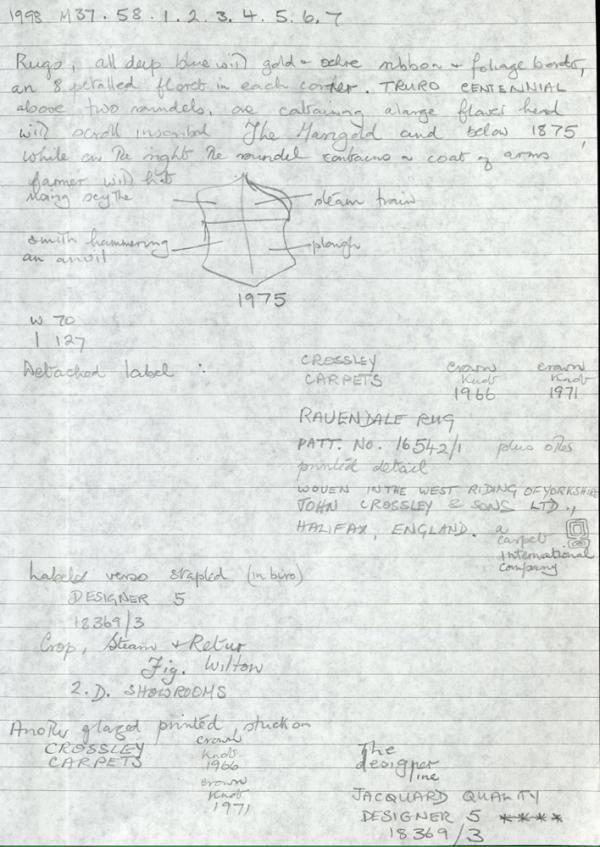 1998 M37.58.1.2.3.4.5.6.7
Rugs, all deep blue with gold & ochre ribbon & foliage border,
an 8 petalled floret in each corner. TRURO CENTENNIAL
above two roundels, one containing a large flower head
with scroll inscribed The Marigold and below 1875,
while on the right the roundel contains a coat of arms
farmer with hat
using scythe
steam train
smith hammering
an anvil
plough
1975
W 70
l 127
Detached label :
CROSSLEY
CARPETS
crown
Knob
1966
crown
Knob
1971
RAVENDALE RUG
PATT. No. 16542/1 plus other
printed detail
WOVEN IN THE WEST RIDING OF YORKSHIRE
JOHN CROSSLEY & SONS LTD.,
HALIFAX, ENGLAND.
a
carpet
International
company
Labels verso stapled (in biro)
DESIGNER 5
18369/3
Crop, Steam & Retur
Fig. Wilton
2. D. SHOWROOMS
Another glazed printed, stuck on
CROSSLEY
CARPETS
crown
Knob
1966
crown
Knob
1971
The
designer
line
JACQUARD QUALITY
DESIGNER 5 ****
18369/3